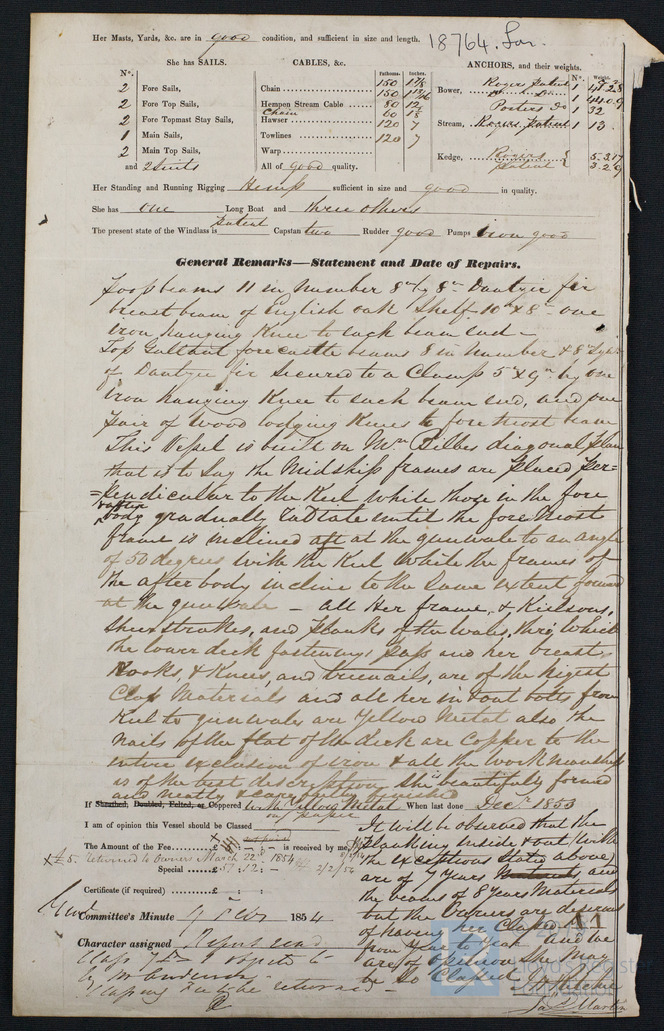 Her Masts, Yards, &c. are in good condition, and sufficient in size and length.
18764. Lon.
She has SAILS.
No.
2 Fore Sails,
2 Fore Top Sails,
2 Fore Topmast Stay Sails,
1 Main Sails,
2 Main Top Sails,
and 2 Suits
CABLES, &c.
Fathoms. Inches.
Chain 150
150
Hempen Stream Cable 80
Chain 60
Hawser 120 7
Towlines 120 7
Warp
All of good quality.
ANCHORS, and their weights.
No. Weight.
Bower, Rogers Patent 1
1
Porters Do 1 32
Stream, Rogers Patent 1 13
Kedge, Rogers Patent
5.3.17
3.2.9
Her Standing and Running Rigging Hemp sufficient in size and good in quality.
She has one Long Boat and three others
The present state of the Windlass is patent Capstan two Rudder good Pumps iron good
General Remarks—Statement and Date of Repairs.
Poop beams 11 in number 8 by 8 Dantzic fir
breast beam of English oak Shelf 10 x 8 one
iron hanging Knee to each beam end –
Top Gallant forecastle beams 8 in number
of Dantzic fir Secured to a Clamp 5 x 9 by one
iron hanging Knee to each beam end, and one
pair of wood lodging Knees to foremost beam
This Vessel is built on Mr Bilbes diagonal plan
that is to say the Midship frames are placed per=
=pendicular to the Keel while those in the fore
body gradually radiate until the fore most
frame is inclined aft at the gunwale to an angle
of 50 degrees with the Keel while the frames of
the after body incline to the same extent forward
at the gunwale – all Her frame, & Kielsons,
sheerstrakes, and planks of the wales,
the lower deck fastenings and her breast
Hooks, & Knees, and treenails, are of the higest
Class Materials and all her in & out bolts from
Keel to gunwales are Yellow Metal also the
nails of the flat of the deck are Copper to the
entire exclusion of iron & all the workmanship
is of the best description She is beautifully formed
and neatly & carefully finished
If Sheathed, Doubled, Felted, or Coppered with Yellow Metal When last done Decr 1853
on paper
I am of opinion this Vessel should be Classed
The Amount of the Fee £ is received by me,
x £5 returned to Owners March 22 1854
Special £57 : 12 : – 2/2/54
Certificate (if required) £
Committee's Minute 9 Feb 1854
Character assigned Report read
It will be observed that the
planking inside & out (with
the exceptions stated above)
are of 7 Years and
the beams of 8 Years Materials
but the Owners are desirous
of having her Classed A1
from Year to Year and we
are of opinion She May
be So Classed
Jas Martin
Lloyd's Register
Foundation